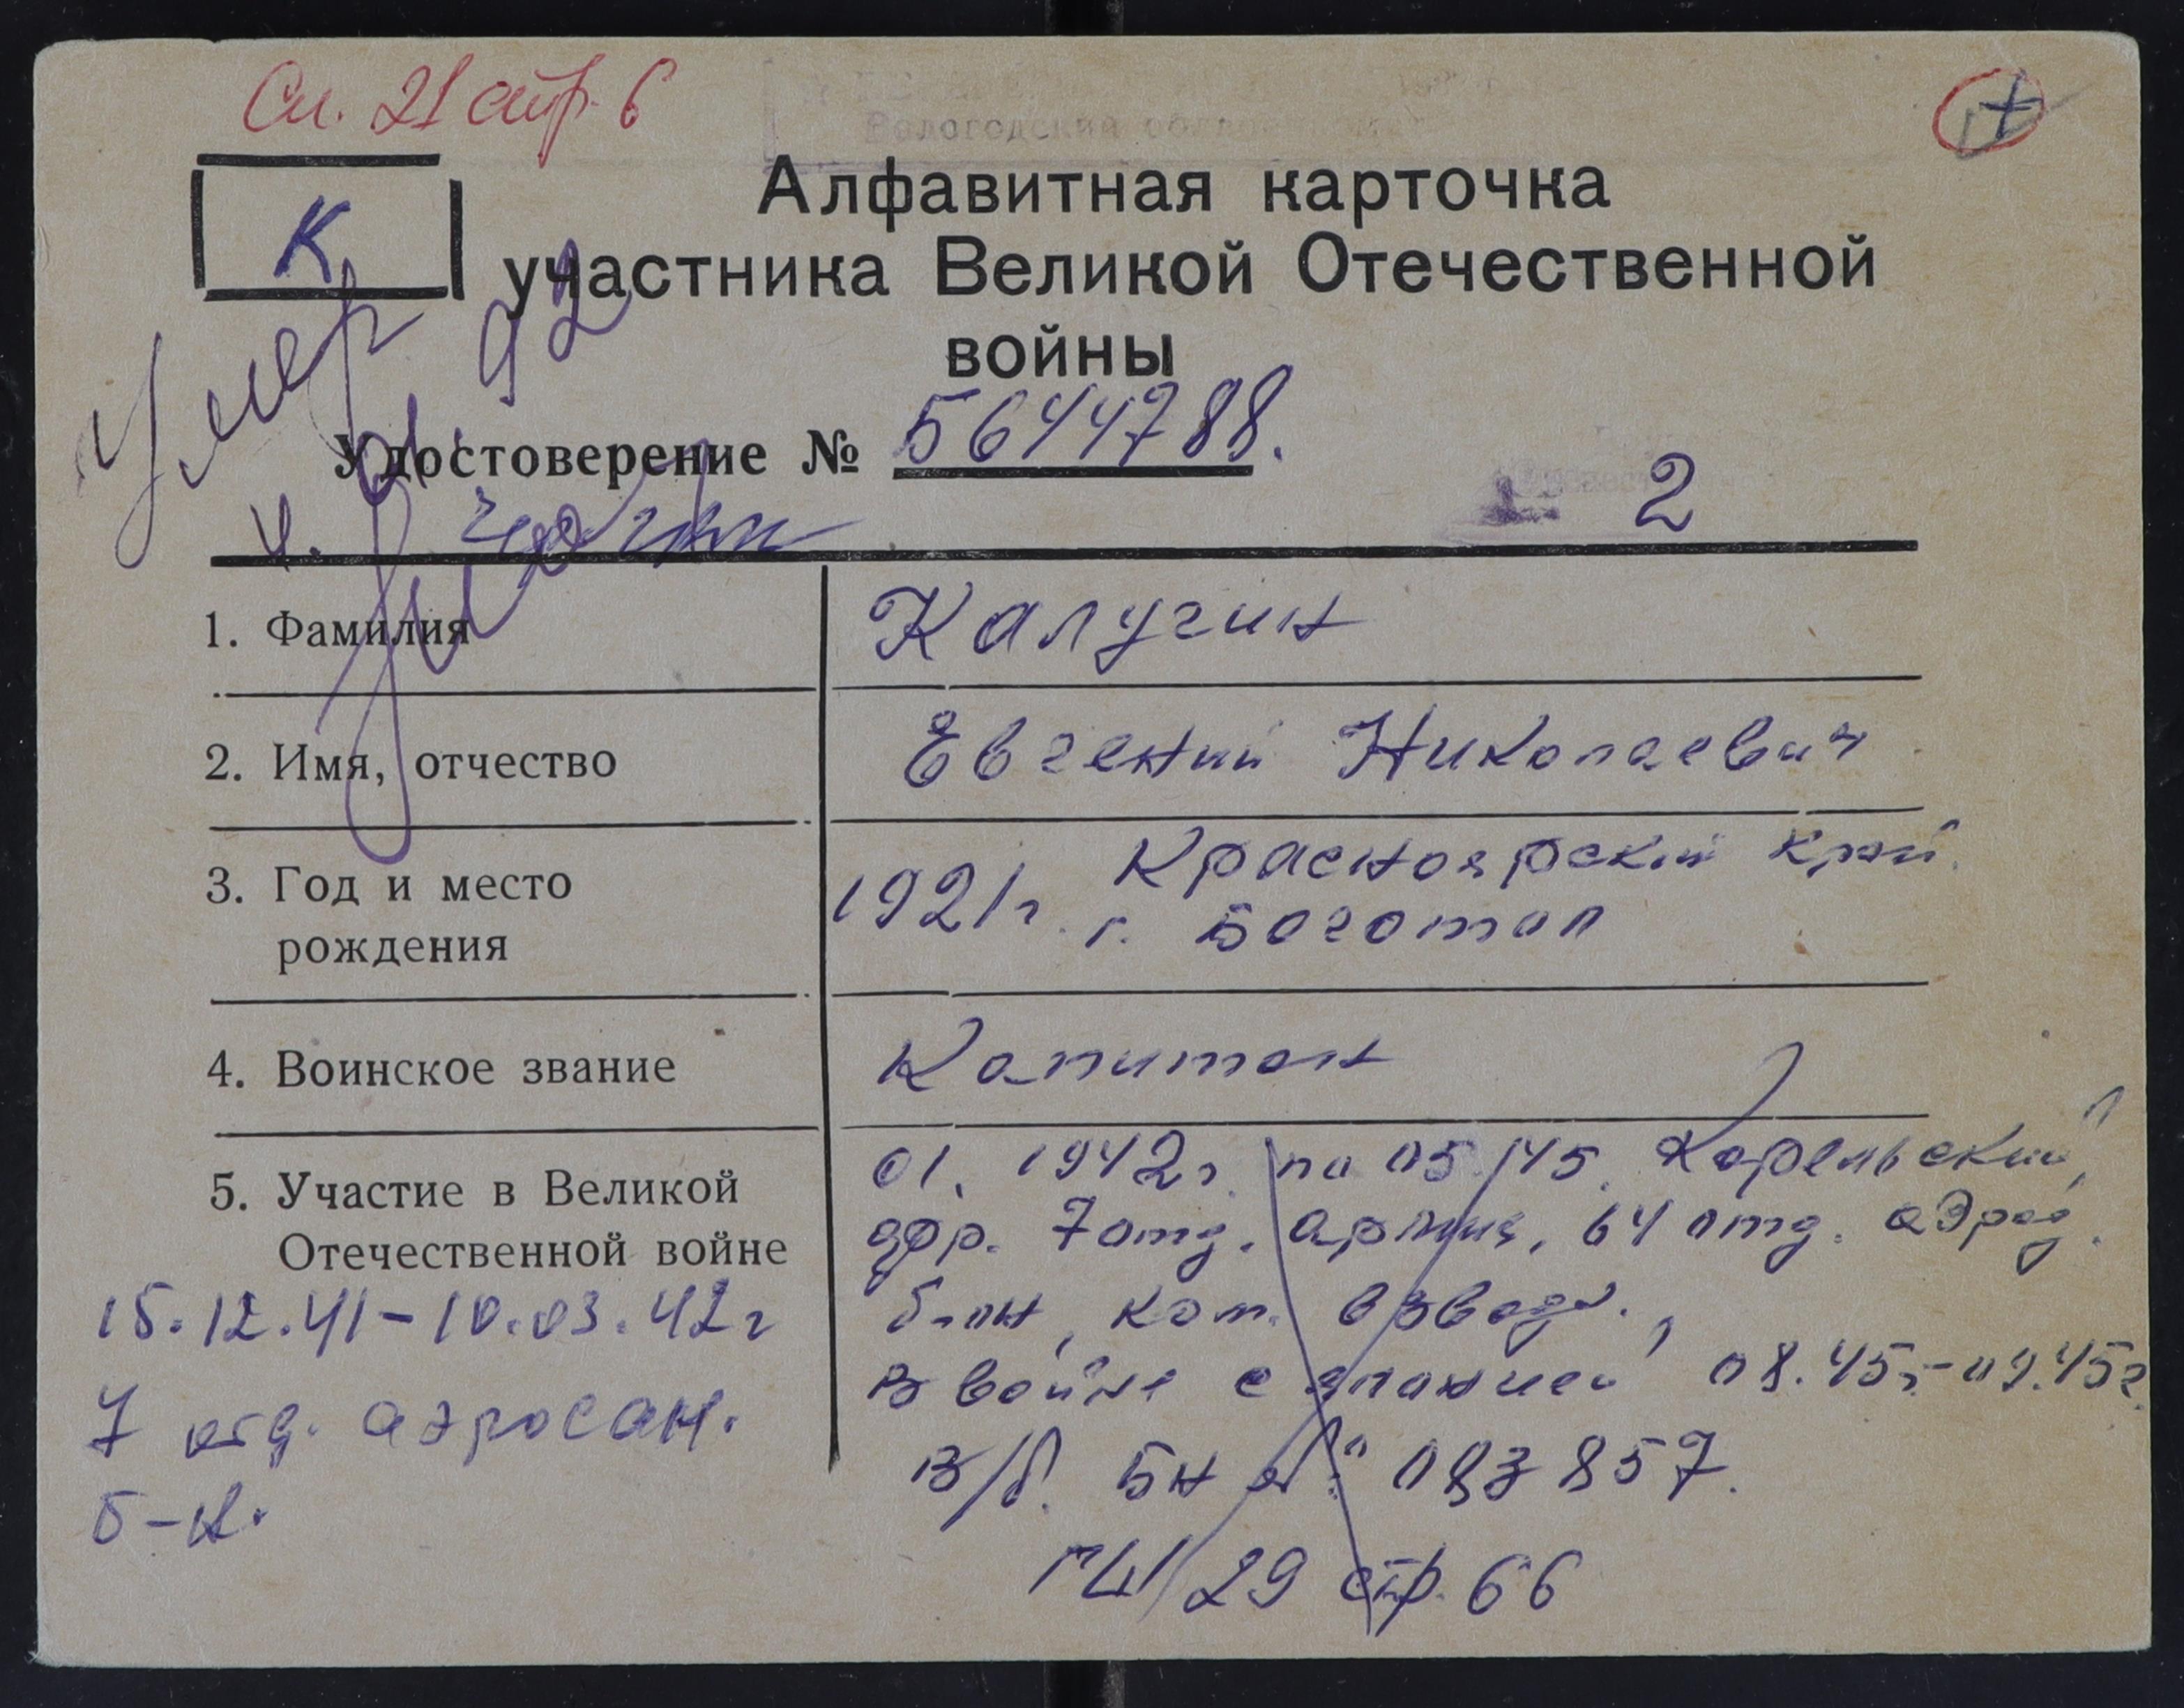 Сп. 21 стр. 6
К
Алфавитная карточка
участника Великой Отечественной
войны
Умер
4. 92
Удостоверение № 5644788.
2
1. Фамилия Калугин
2. Имя, отчество Евгений Николаевич
3. Год и место рождения 1921г. Красноярский край.
г. Боготол
4. Воинское звание Капитан
5. Участие в Великой
Отечественной войне
01. 1942г. по 05.45. Карельский
фр. 7 отд. армия, 64 отд. аэрод.
б-он, ком. взвода.
в войне с японией 08.45г-09.45г
в/б. БН № 083857.
ГШ/29 стр. 66
15.12.41-10.03.42г
7 отд. аэросан.
б-н.